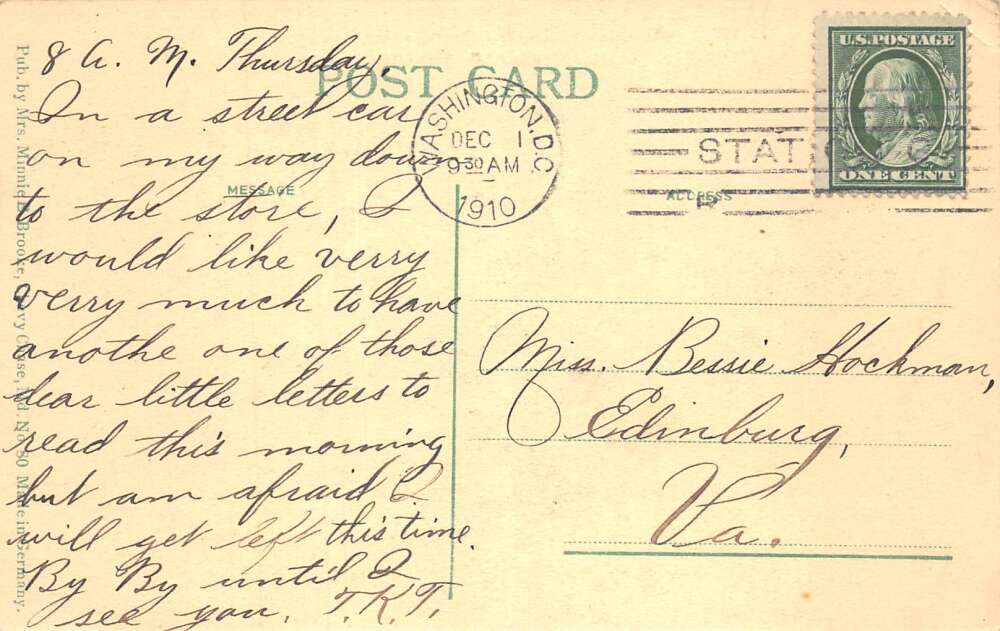 8 A. M. Thursday,
In a street car
on my way down
to the store, I
would like verry
verry much to have
anothe one of those
dear little letters to
read this morning
but am afraid I
will get left this time.
By By until I
see you. T.K.T.
POST CARD
MESSAGE
ADDRESS
WASHINGTON, D.C.
DEC 1
9 30 AM
1910
STAT.
U.S. POSTAGE
ONE CENT
Miss. Bessie Hockman,
Edinburg,
Va.
Pub. by Mrs. Minnie Brooke, Chase, Md. No. 80 Made in Germany.